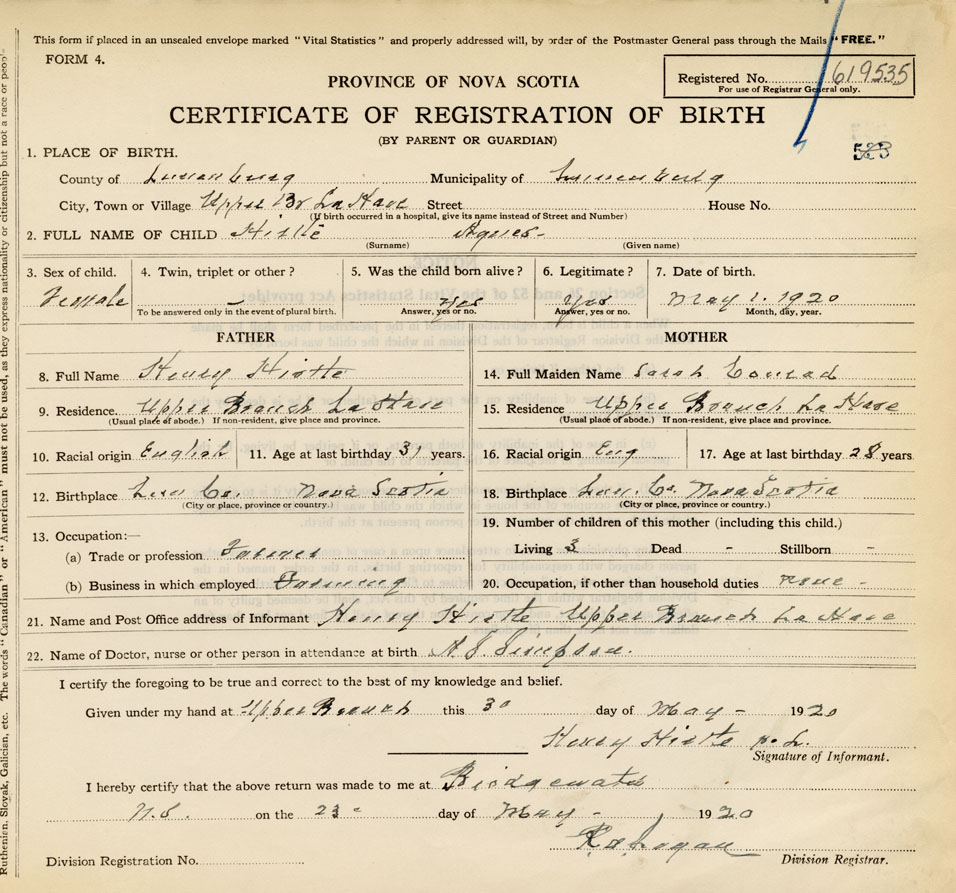 This form if placed in an unsealed envelope marked "Vital Statistics" and properly addressed will, by order of the Postmaster General pass through the Mails "FREE."
FORM 4.
PROVINCE OF NOVA SCOTIA
Registered No. 619535
For use of Registrar General only.
CERTIFICATE OF REGISTRATION OF BIRTH
(BY PARENT OR GUARDIAN)
523
1. PLACE OF BIRTH.
County of Lunenburg Municipality of Lunenburg
City, Town or Village Upper Br La Have Street House No.
(If birth occurred in a hospital, give its name instead of Street and Number)
2. FULL NAME OF CHILD Hirtle Agnes
(Surname) (Given name)
3. Sex of child. 4. Twin, triplet or other? 5. Was the child born alive? 6. Legitimate? 7. Date of birth.
Female — yes yes May 1. 1920
To be answered only in the event of plural birth. Answer, yes or no. Answer, yes or no. Month, day, year.
FATHER MOTHER
8. Full Name Henry Hirtle 14. Full Maiden Name Sarah Conrad
9. Residence. Upper Branch La Have 15. Residence Upper Branch La Have
(Usual place of abode.) If non-resident, give place and province. (Usual place of abode.) If non-resident, give place and province.
10. Racial origin English 11. Age at last birthday 31 years. 16. Racial origin Eng 17. Age at last birthday 28 years
12. Birthplace Lun Co. Nova Scotia 18. Birthplace Lun. Co. Nova Scotia
(City or place, province or country.) (City or place, province or country.)
13. Occupation:— 19. Number of children of this mother (including this child.)
(a) Trade or profession Farmer Living 3 Dead - Stillborn -
(b) Business in which employed Farming 20. Occupation, if other than household duties none -
21. Name and Post Office address of Informant Henry Hirtle Upper Branch La Have
22. Name of Doctor, nurse or other person in attendance at birth Simpson.
I certify the foregoing to be true and correct to the best of my knowledge and belief.
Given under my hand at Upper Branch this day of May - 1920
Henry Hirtle
Signature of Informant.
I hereby certify that the above return was made to me at Bridgewater
N.S. on the 23 day of May - 1920
Logan
Division Registration No. Division Registrar.
Ruthenien, Slovak, Galician, etc. The words "Canadian" or "American" must not be used, as they express nationality or citizenship but not a race or